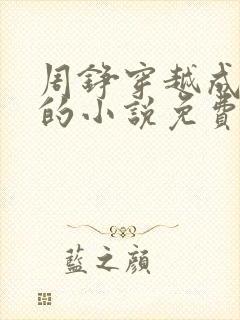 周錚穿越成
的小說免費
藍之顏